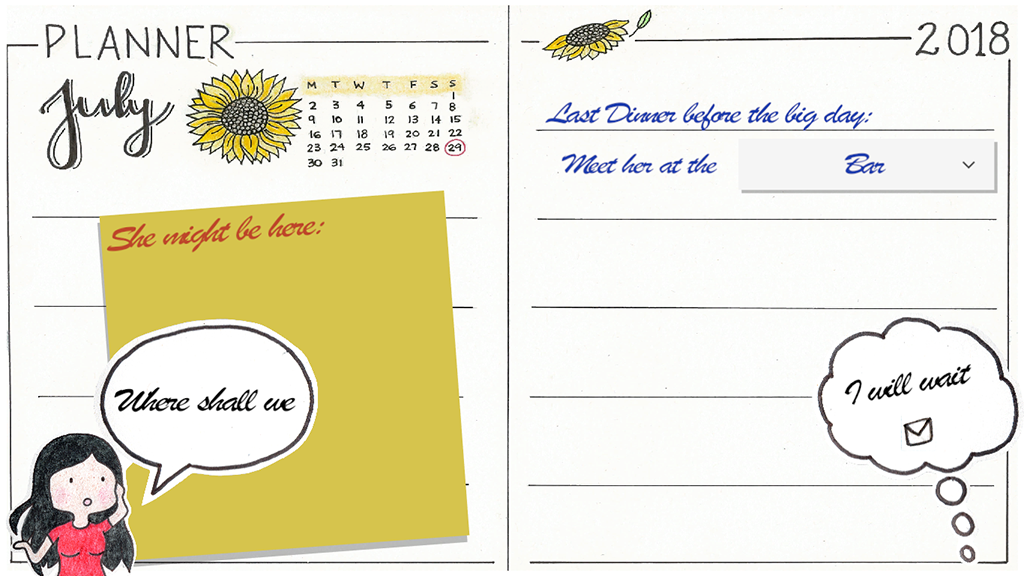 PLANNER
July
M T W T F S S
1
2 3 4 5 6 7 8
9 10 11 12 13 14 15
16 17 18 19 20 21 22
23 24 25 26 27 28 29
30 31
She might be here:
Where shall we
2018
Last Dinner before the big day:
Meet her at the Bar
I will wait